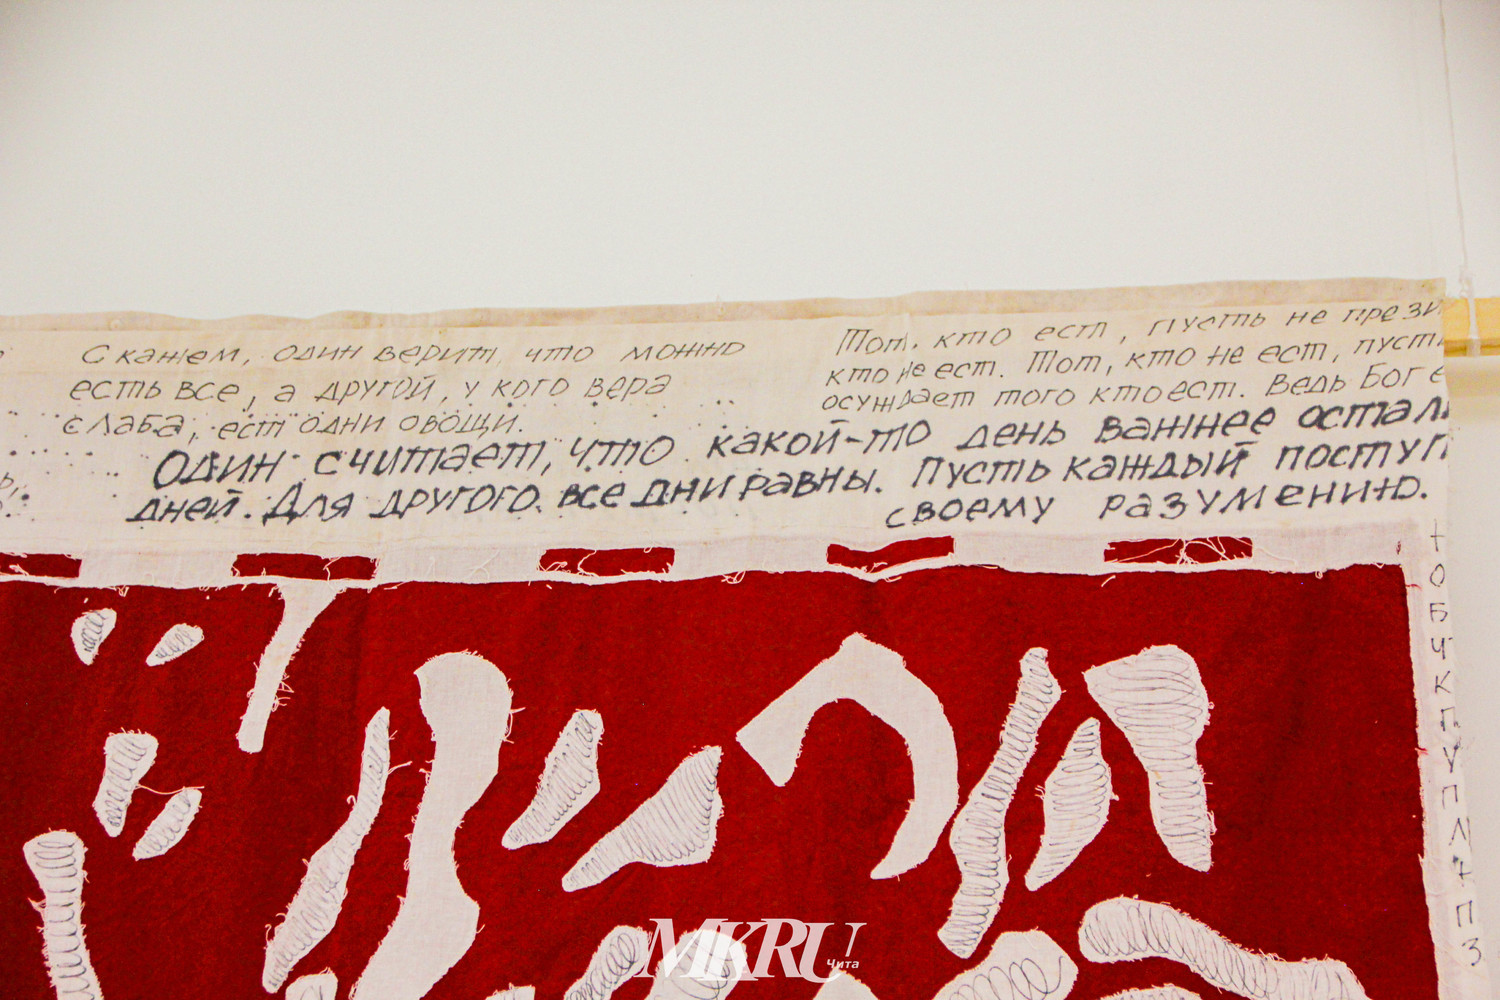 Скажем, один верит, что можно
есть все, а другой, у кого вера
слаба, ест одни овощи.
Тот, кто ест, пусть не прези
кто не ест. Тот, кто не ест, пусть
осуждает того кто ест. Ведь Бог е
Один считает, что какой-то день важнее осталь
дней. Для другого все дни равны. Пусть каждый поступ
своему разумению.
О
Б
Ч
К
П
У
П
Л
П
З
МКRU
Чита